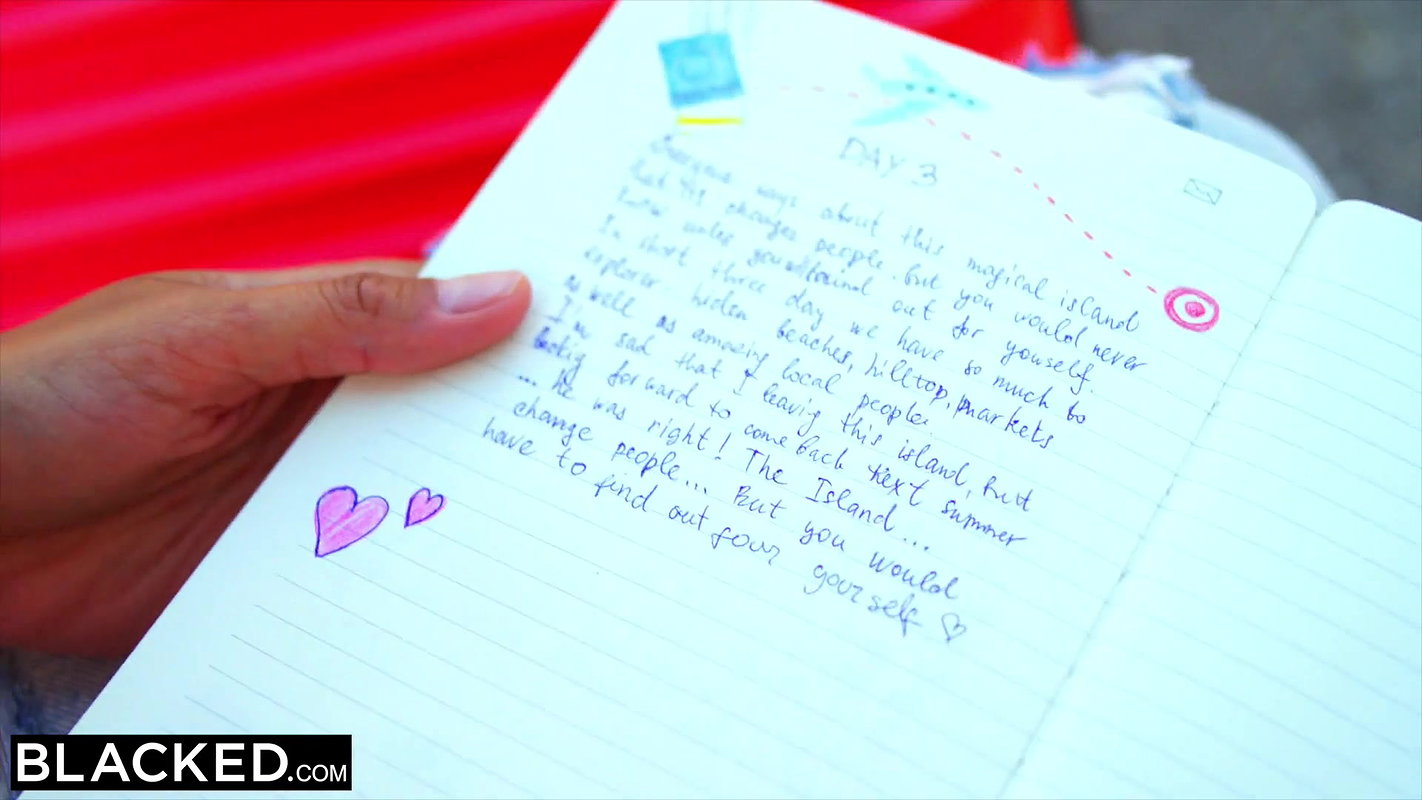 DAY 3
Everyone says about this magical island
that it changes people. but you would never
know unles you found out for yourself.
In short three day we have so much to
explorer hiden beaches, hilltop, markets
as well as amazing local people
I'm sad that I leavig this island, but
lookig forward to come back next summer
... he was right! The Island...
change people... But you would
have to find out four yourself
BLACKED.COM